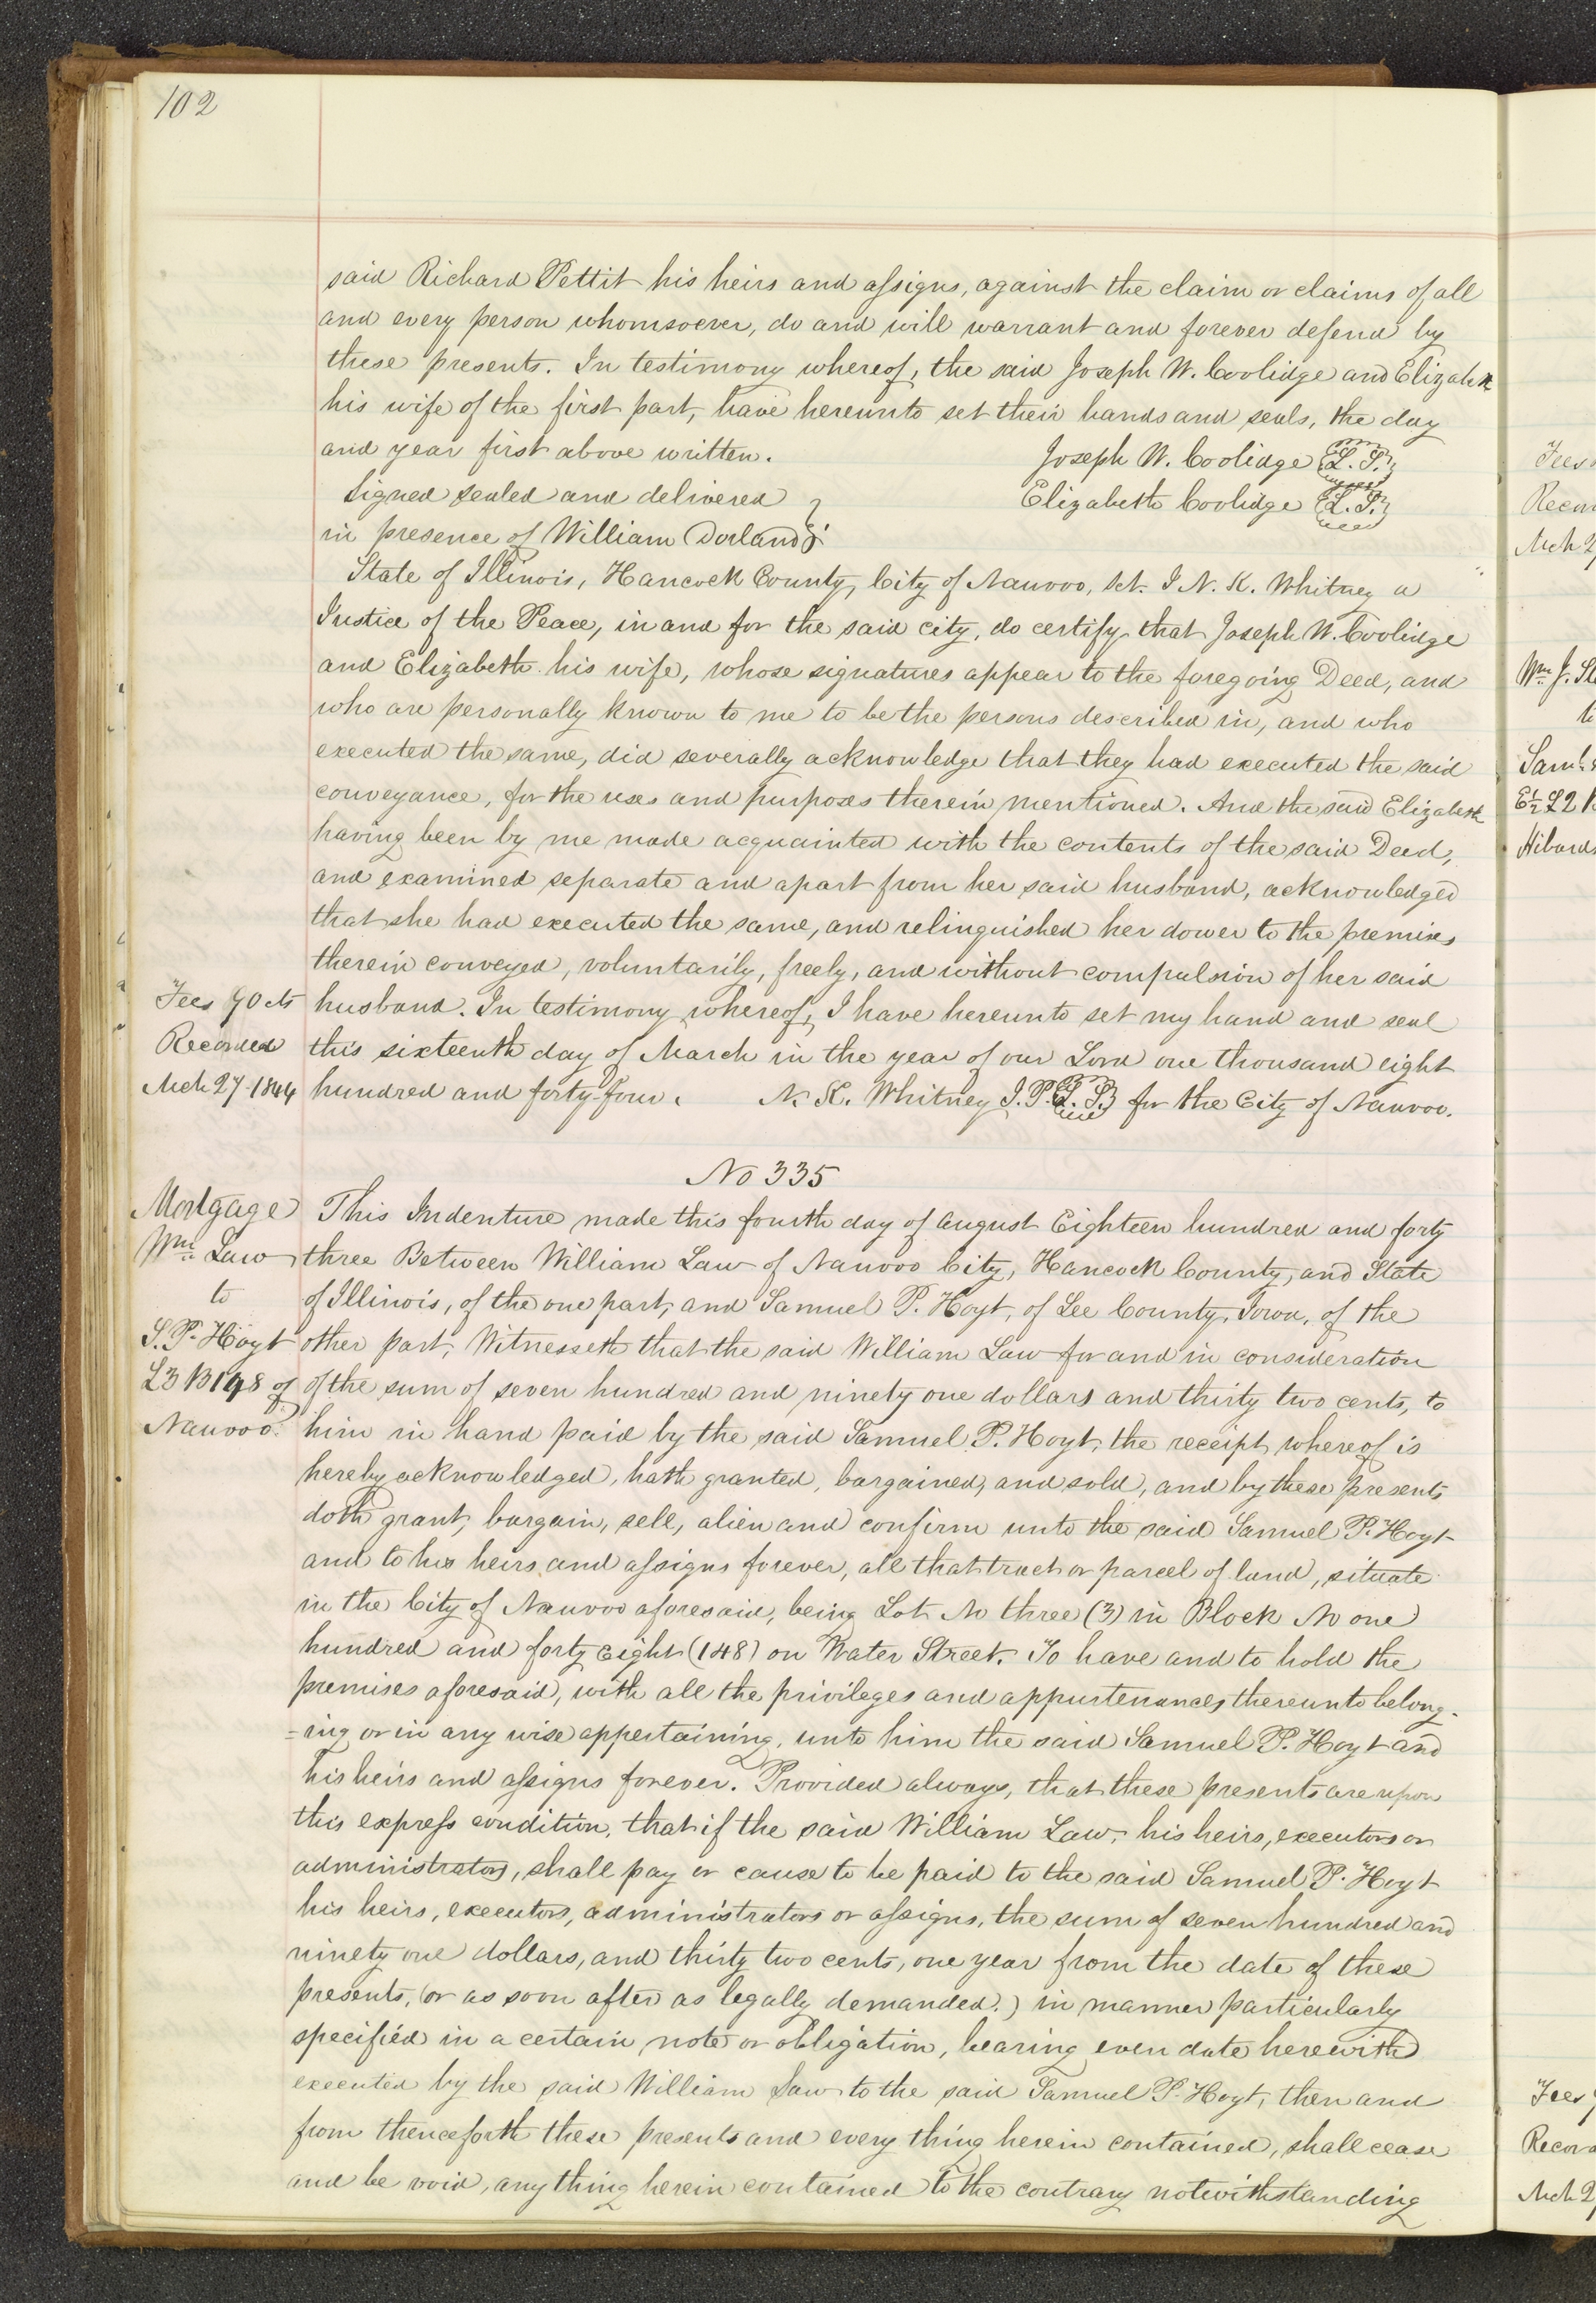 102
said Richard Pettit his heirs and assigns, against the claim or claims of all
and every person whomsoever, do and will warrant and forever defend by
these presents. In testimony whereof, the said Joseph W. Coolidge and Elizabeth
his wife of the first part, have hereunto set their hands and seals, the day
and year first above written. Joseph W. Coolidge L. S.
Signed sealed and delivered Elizabeth Coolidge L. S.
in presence of William Dorland
State of Illinois, Hancock County, City of Nauvoo, Sct. I N. K. Whitney a
Justice of the Peace, in and for the said city, do certify that Joseph W. Coolidge
and Elizabeth his wife, whose signatures appear to the foregoing Deed, and
who are personally known to me to be the persons described in, and who
executed the same, did severally acknowledge that they had executed the said
conveyance, for the uses and purposes therein mentioned. And the said Elizabeth
having been by me made acquainted with the contents of the said Deed,
and examined separate and apart from her said husband, acknowledged
that she had executed the same, and relinquished her dower to the premises
therein conveyed, voluntarily, freely, and without compulsion of her said
Fees 70 cts husband. In testimony whereof, I have hereunto set my hand and seal
Recorded this sixteenth day of March in the year of our Lord one thousand eight
Mch 27 1844 hundred and forty-four. N. K. Whitney J. P. L. S. for the City of Nauvoo.
No 335
Mortgage This Indenture made this fourth day of August Eighteen hundred and forty
Wm Law three Between William Law of Nauvoo City, Hancock County, and State
to of Illinois, of the one part, and Samuel P. Hoyt, of Lee County, Iowa, of the
S. P. Hoyt other part, Witnesseth that the said William Law for and in consideration
L3 B148 of of the sum of seven hundred and ninety one dollars and thirty two cents, to
Nauvoo. him in hand paid by the said Samuel P. Hoyt, the receipt whereof is
hereby acknowledged, hath granted, bargained, and sold, and by these presents
doth grant, bargain, sell, alien and confirm unto the said Samuel P. Hoyt
and to his heirs and assigns forever, all that tract or parcel of land, situate
in the City of Nauvoo aforesaid, being Lot No three (3) in Block No one
hundred and forty eight (148) on Water Street. To have and to hold the
premises aforesaid, with all the privileges and appurtenances thereunto belong-
=ing or in any wise appertaining, unto him the said Samuel P. Hoyt and
his heirs and assigns forever. Provided always, that these presents are upon
this express condition, that if the said William Law, his heirs, executors or
administrators, shall pay or cause to be paid to the said Samuel P. Hoyt
his heirs, executors, administrators or assigns, the sum of seven hundred and
ninety one dollars, and thirty two cents, one year from the date of these
presents, (or as soon after as legally demanded.) in manner particularly
specified in a certain note or obligation, bearing even date herewith
executed by the said William Law to the said Samuel P. Hoyt, then and
from thenceforth these presents and every thing herein contained, shall cease
and be void, any thing herein contained to the contrary notwithstanding
Fees
Mch 2
Wm J.
Hibard
Fees
Mch 2